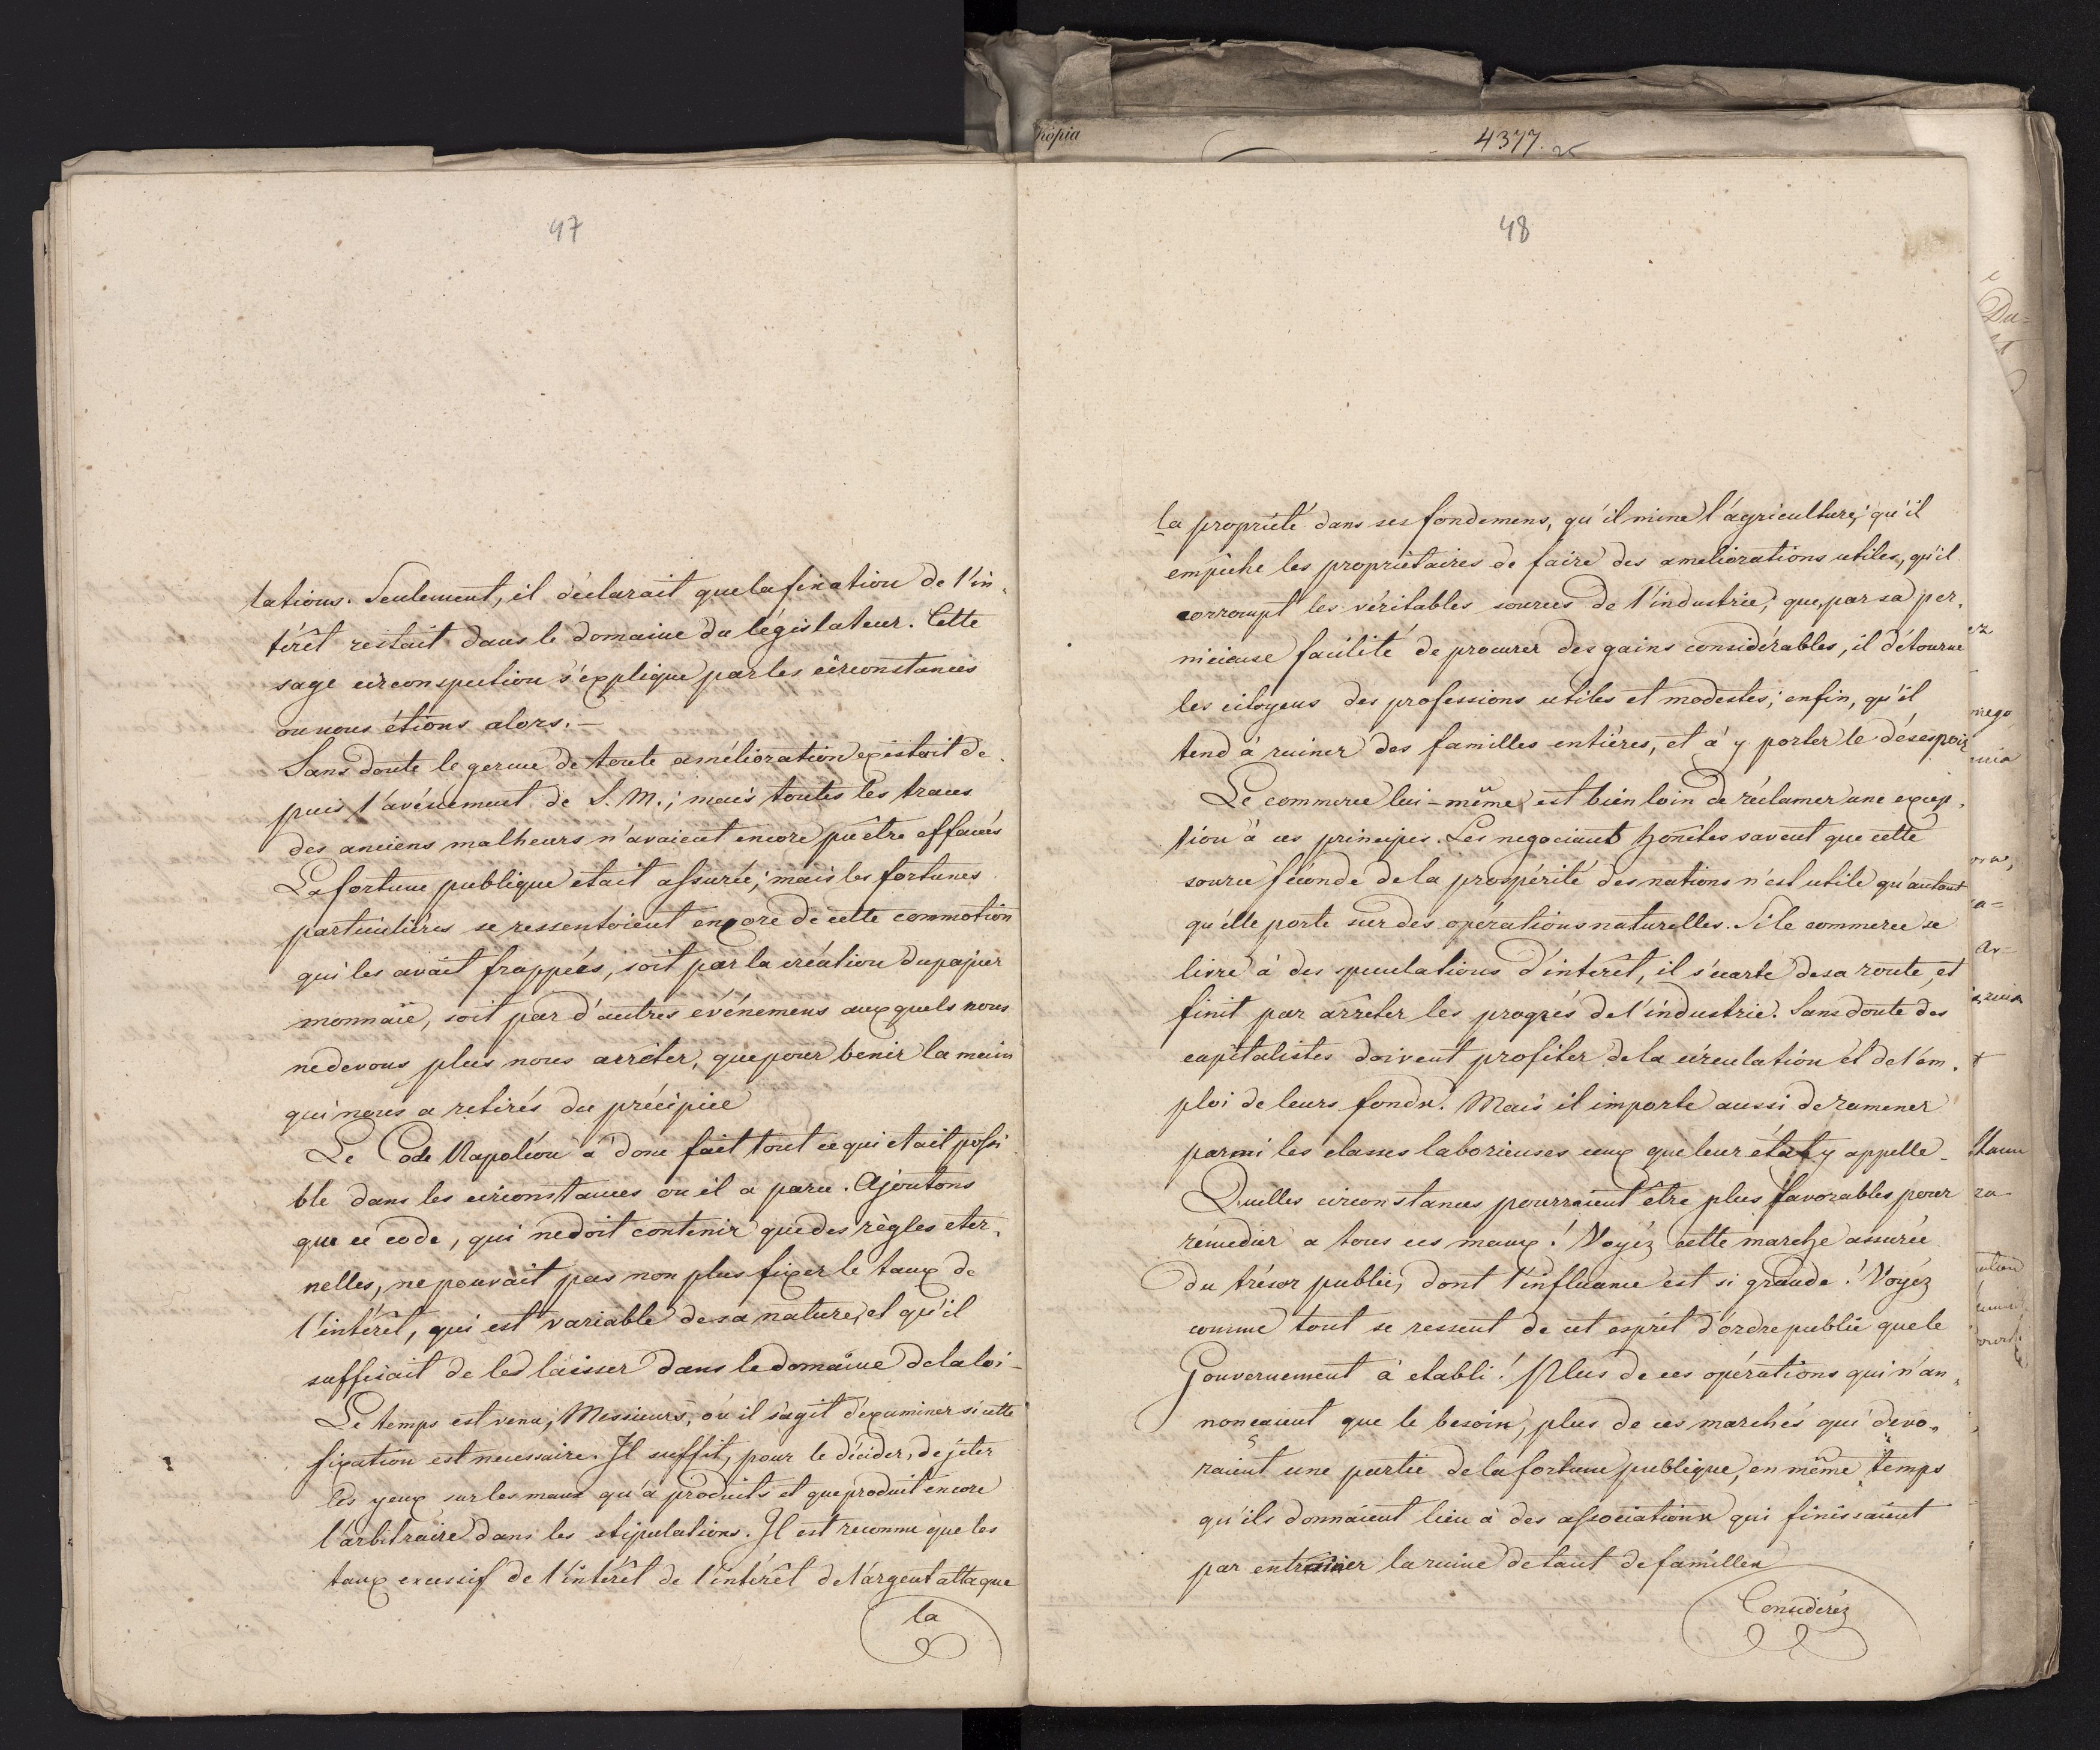 Kopia
4377.
47
tations. Seulement, il déclarait que la fixation de l'in,
térêt restait dans le domaine du législateur. Cette
sage circonspection s'explique par les circonstances
ou nous étions alors.—
Sans doute le germe de toute amélioration existait de,
puis l'avénement de S. M.; mais toutes les traces
des anciens malheurs n'avaient encore pu être effacés
La fortune publique etait assurée; mais les fortunes
particuliéres se ressentoient encore de cette commotion
qui les avait frappées, soit par la création du papier
monnaie, soit par d'autres événemens auxquels nous
ne devons plus nous arrêter, que pour benir la main
qui nous a retirés du précipice
Le Code Napoléon a donc fait tout ce qui etait possi
ble dans les circonstances ou il a paru. Ajoutons
que ce code, qui ne doit contenir que des règles eter,
nelles, ne pouvait pas non plus fixer le taux de
l'intérêt, qui est variable de sa nature, et qu'il
suffisait de les laisser dans le domaine de la loi—
Le temps est venu, Messieurs, où il s'agit d'examiner si cette
fixation est necessaire. Il suffit, pour le décider, de jeter
les yeux sur les maux qu'a produits et que produit encore
l'arbitraire dans les stipulations. Il est reconnu que les
taux excessif de l'intérêt de l'intérêt de l'argent attaque
la
48
la propriété dans ses fondemens, qu'il mine l'agriculture; qu'il
empêche les propriétaires de faire des ameliorations utiles, qu'il
corrompt les véritables sources de l'industrie; que, par sa per,
nicieuse facilité de procurer des gains considérables, il détourne
les citoyens des professions utiles et modestes; enfin, qu'il
tend à ruiner des familles entiéres, et à y porter le désespoir
Le commerce lui-même est bien loin de réclamer une excep,
tion à ces principes. Les negociants honêtes savent que cette
source féconde de la prospérité des nations n'est utile qu'autant
qu'elle porte sur des opérations naturelles. Si le commerce se
livre à des speculations d'interêt, il s'ecarte de sa route, et
finit par arrêter les progrés de l'industrie. Sans doute des
capitalistes doivent profiter de la circulation et de l'em,
ploi de leurs fonds. Mais il importe aussi de ramener
parmi les classes laborieuses ceux que leur état y appelle—
Quelles circonstances pourraient être plus favorables pour
remedier a tous ces maux! Voyéz cette marche assurée
du trésor public, dont l'influance est si grande! Voyéz
comme tout se ressent de cet esprit d'ordre public que le
Gouvernement à etabli! Plus de ces opérations qui n'an,
nonçaient que le besoin, plus de ces marchés qui devo,
raient une partie de la fortune publique, en même temps
qu'ils donnaient lieu à des associations qui finissaient
par entrainer la ruine de tant de familles
Considéréz